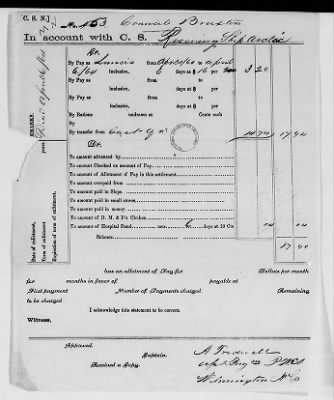 C. S. N.]
No. 153 Conrad Braxton
In account with C. S. Receiving Ship Arctic
Cr.
By Pay as from April 1 to April
6/64 Inclusive, 6 days at $16 per 3 20
By Pay as from to
Inclusive, days at $ per
By Pay as from to
Inclusive, days at $ per
By Rations undrawn at Cents each
By transfer from 14 74 17 94
Dr.
To amount advanced by
To amount Checked on account of Pay
To amount of Allotment of Pay in this settlement
To amount overpaid from
To amount paid in Slops
To amount paid in small stores
To amount paid in money
To amount of D. M. & D's Clothes
To amount of Hospital Fund mos. 6 days at 20 Cts 04 04
Balance
17 90
REMARKS.
Date of enlistment,
Term of enlistment,
Expiration of term of enlistment,
has an allotment of Pay for Dollars per month
for months in favor of payable at
First payment Number of Payments charged Remaining
to be charged
I acknowledge this statement to be correct.
Witness,
Approved,
Captain.
Received a Copy,
A. Tredwell
Asst Paym P.N.C.S
Wilmington N.C.